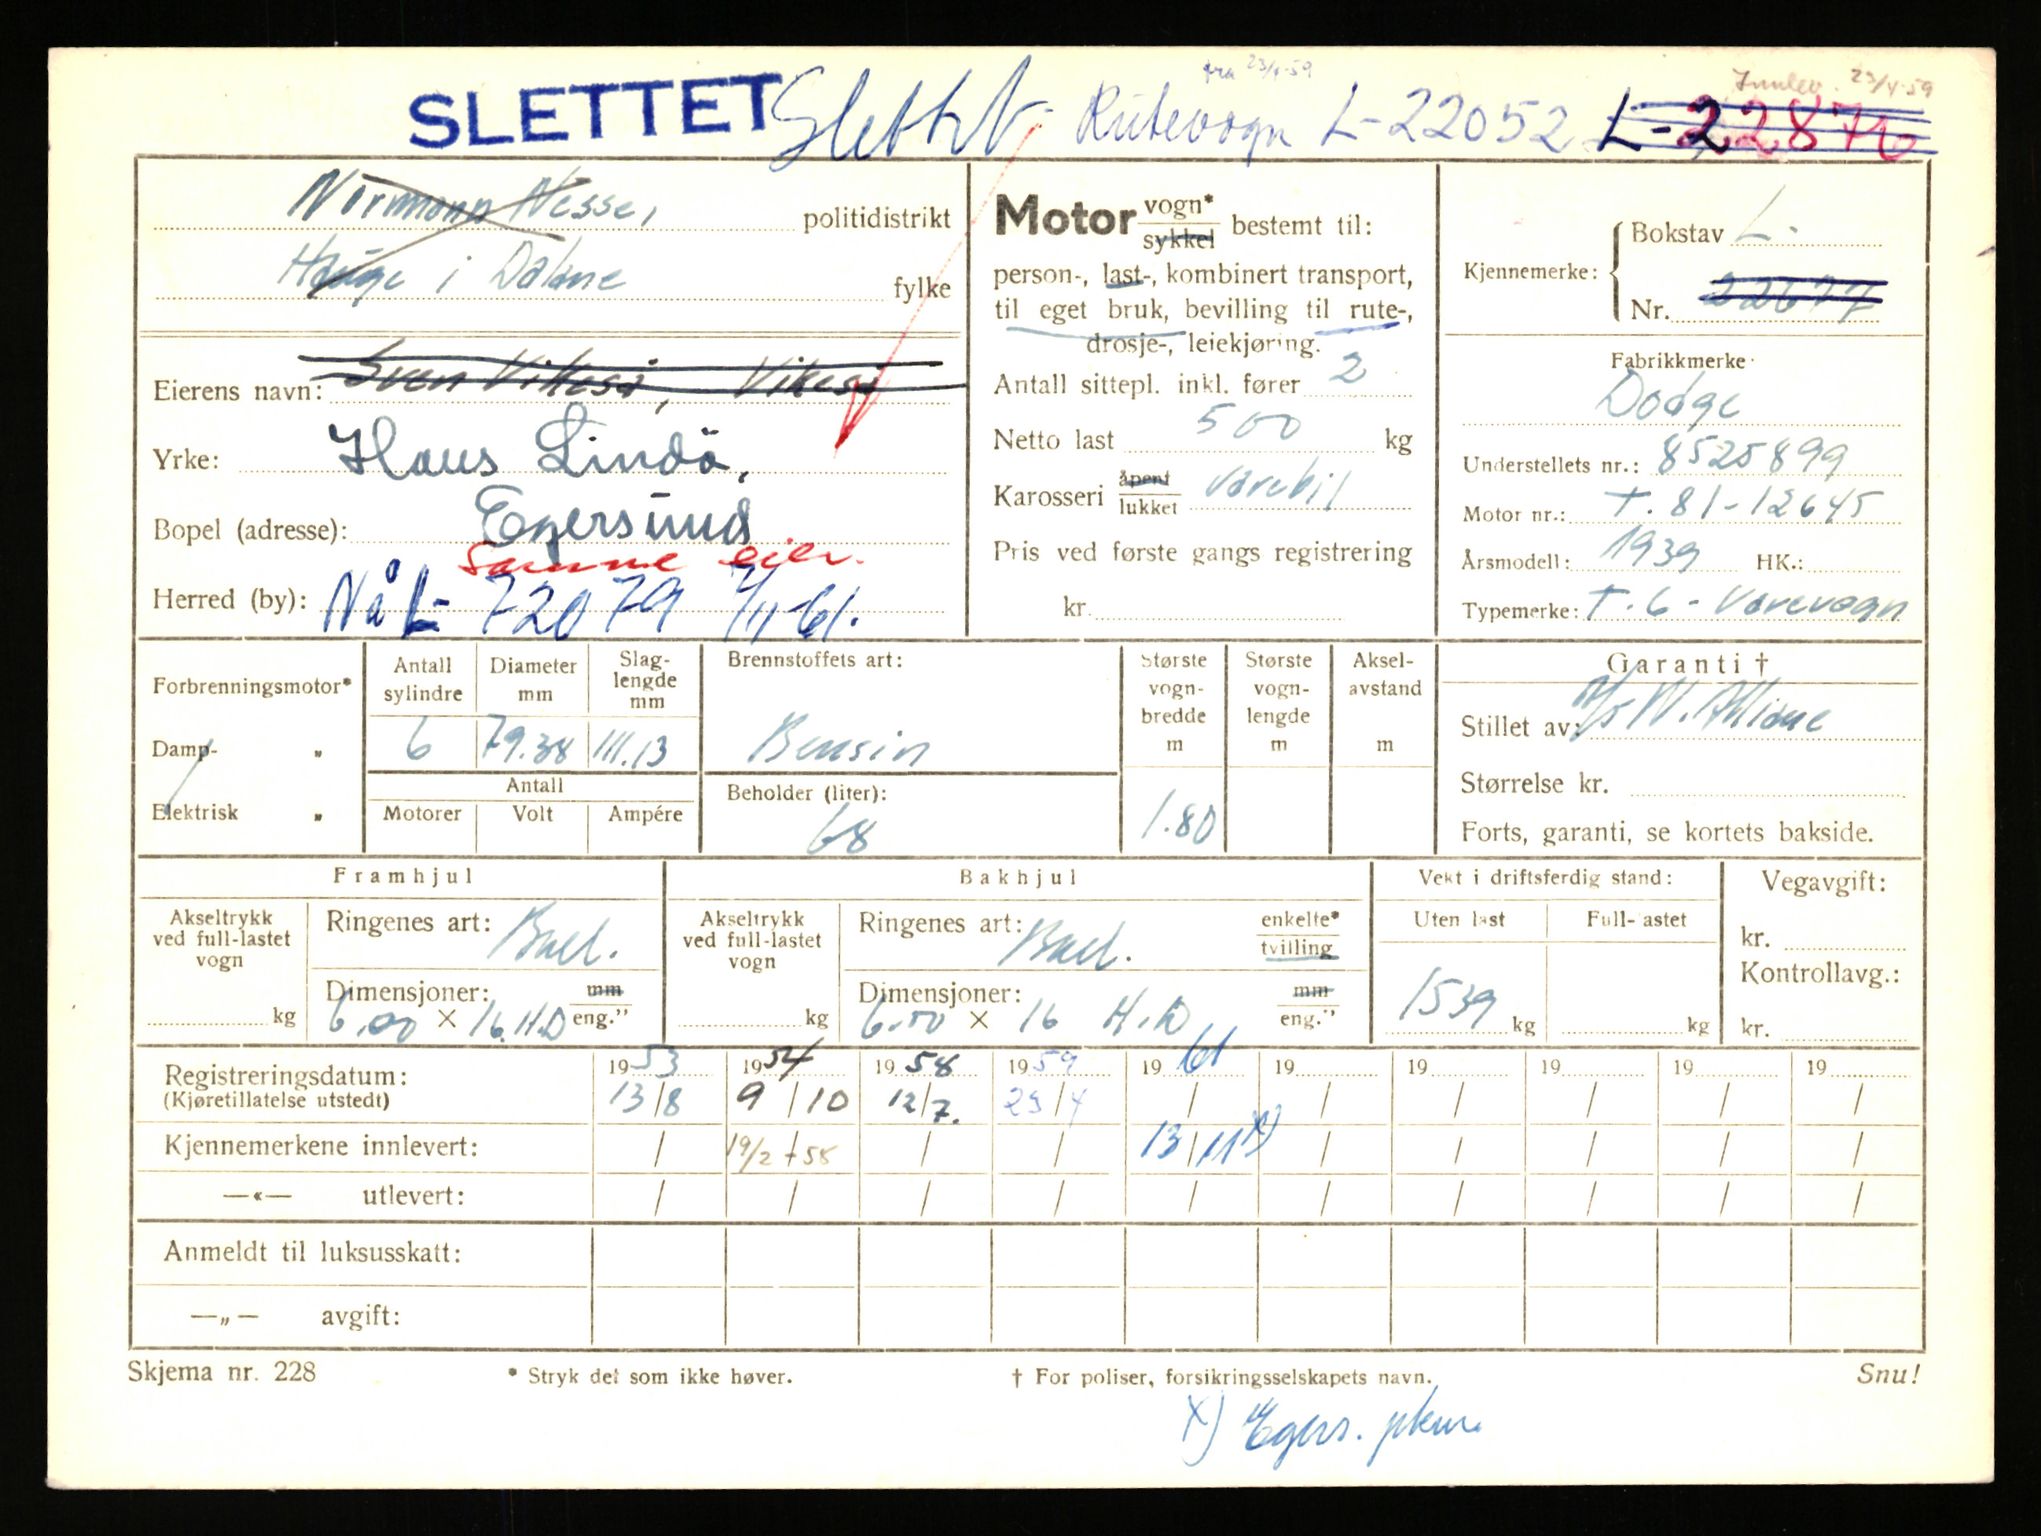 fra 23/4-59
Innlev. 23/4-59
SLETTET Slettet Rutevogn L-22052 L-22876
Normann Nesse, politidistrikt
Hauge i Dalane fylke
Eierens navn: Sven Vikeså, Vikeså
Yrke: Haus Lindö,
Bopel (adresse): Egersund
Samme eier.
Herred (by): Nå L- 72079 7/11-61.
Motor vogn*
sykkel bestemt til:
person-, last-, kombinert transport,
til eget bruk, bevilling til rute-,
drosje-, leiekjøring.
Antall sittepl. inkl. fører 2
Netto last 500 kg
Karosseri åpent
lukket varebil
Pris ved første gangs registrering
kr.
Kjennemerke: Bokstav L.
Nr. 22677
Fabrikkmerke
Dodge
Understellets nr.: 8525899
Motor nr.: T. 81-12645
Årsmodell: 1939 HK.:
Typemerke: T.6 - Varevogn
Forbrenningsmotor*
Damp- „
Elektrisk „
Antall sylindre 6
Diameter mm 79.38
Slag-lengde mm 111.13
Antall
Motorer Volt Ampére
Brennstoffets art:
Bensin
Beholder (liter):
68
Største vogn-bredde m 1.80
Største vogn-lengde m
Aksel-avstand m
Garanti †
Stillet av:
Størrelse kr.
Forts, garanti, se kortets bakside.
Framhjul
Akseltrykk ved full-lastet vogn
kg
Ringenes art:
Dimensjoner: mm
6.00 × 16 H.D eng."
Bakhjul
Akseltrykk ved full-lastet vogn
kg
Ringenes art: enkelte*
tvilling
Dimensjoner: mm
6.00 × 16 H.D eng."
Vekt i driftsferdig stand:
Uten last Full-lastet
1539 kg kg
Vegavgift:
kr.
Kontrollavg.:
kr.
Registreringsdatum: 1953 1954 1958 1959 1961 19 19 19 19 19
(Kjøretillatelse utstedt) 13/8 9/10 12/7. 23/4 / / / / / /
Kjennemerkene innlevert: / 19/2-58 / / 13/11 x) / / / / /
—«— utlevert: / / / / / / / / / /
Anmeldt til luksusskatt:
—„— avgift:
Skjema nr. 228 * Stryk det som ikke høver. † For poliser, forsikringsselskapets navn. Snu!
x) Egers. pkm.